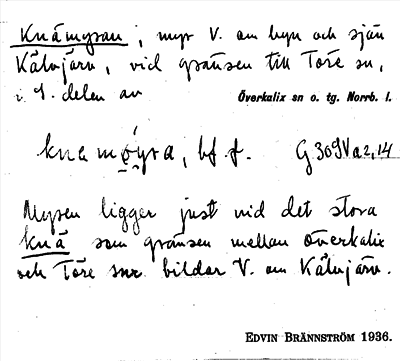 Knämyran, myr V. om byn och sjön
Kälvjärv, vid gränsen till Töre sn,
i S. delen av Överkalix sn o. tg. Norrb. l.
knamo̬y̬ra, bf. f. G 309 V a 2, 14
Myren ligger just vid det stora
knä som gränsen mellan Överkalix
och Töre snr bildar V. om Kälvjärv.
EDVIN BRÄNNSTRÖM 1936.